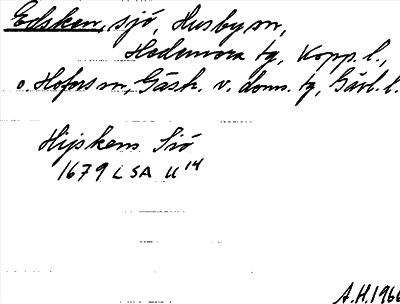 Edsken, sjö, Husby sn,
Hedemora tg, Kopp. l.,
o. Hofors sn, Gästr. v. doms. tg, Gävl. l.
Hijskens Siö
1679 LSA U 14
A.H. 1966